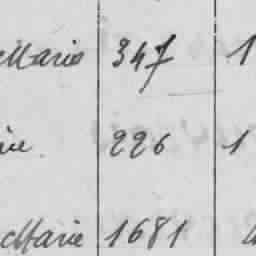 Marie 347 1
226 1
Marie 1681